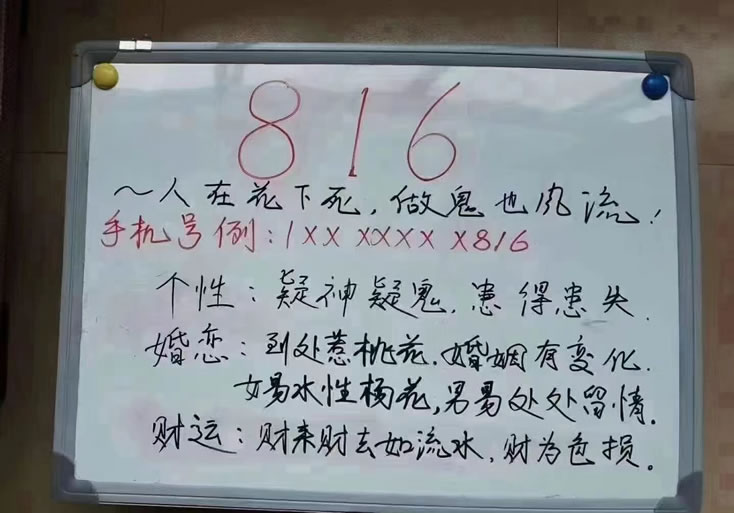 816
~人在花下死，做鬼也风流！
手机号例：1XX XXXX X816
个性：疑神疑鬼，患得患失.
婚恋：到处惹桃花.婚姻有变化.
女易水性杨花，男易处处留情.
财运：财来财去如流水，财为色损。